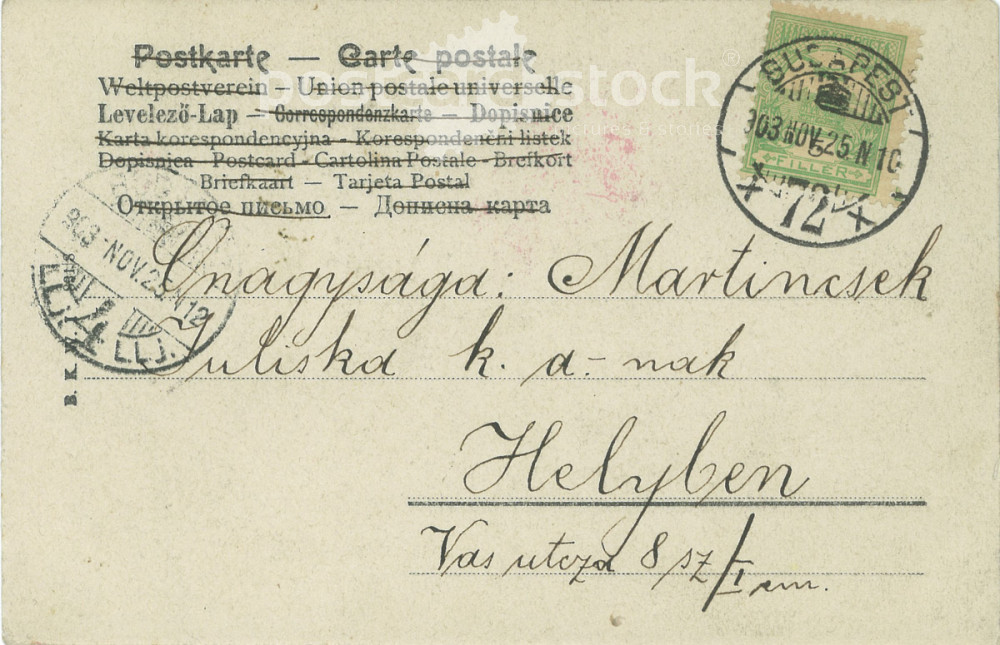 Postkarte — Carte postale
Weltpostverein - Union postale universelle
Levelező-Lap — Correspondenzkarte — Dopisnice
Karta korespondencyjna - Korespondenčni listek
Dopisnica - Postcard - Cartolina Postale - Brefkort
Briefkaart — Tarjeta Postal
Открытое письмо — Дописна карта
BUDAPEST
903 NOV. 25 N 10
72
5
FILLER
903 NOV. 25 N 12
4
Őnagysága: Martincsek
Juliska k. a-nak
Helyben
Vas utcza 8 sz/I em.
B. K.